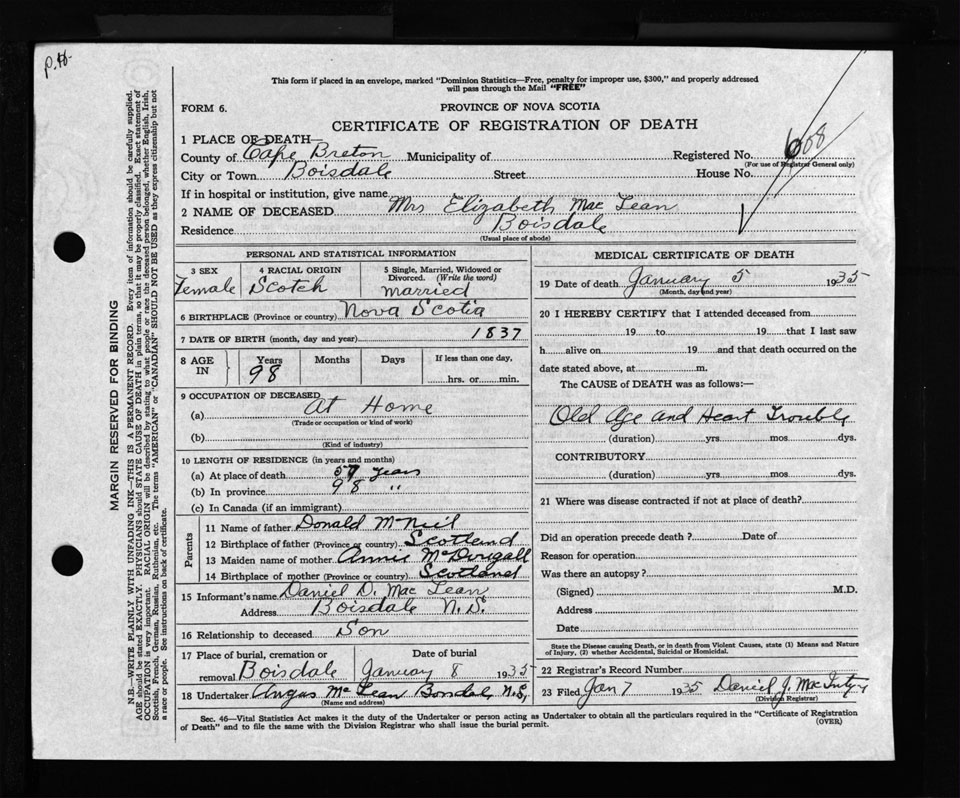 P.H.
This form if placed in an envelope, marked "Dominion Statistics—Free, penalty for improper use, $300," and properly addressed
will pass through the Mail "FREE"
FORM 6.
PROVINCE OF NOVA SCOTIA
CERTIFICATE OF REGISTRATION OF DEATH
1 PLACE OF DEATH—
County of Cape Breton Municipality of Registered No. 608
(For use of Registrar General only)
City or Town Boisdale Street House No.
If in hospital or institution, give name
2 NAME OF DECEASED Mrs Elizabeth Mac Lean
Residence Boisdale
(Usual place of abode)
PERSONAL AND STATISTICAL INFORMATION
3 SEX 4 RACIAL ORIGIN 5 Single, Married, Widowed or
Divorced. (Write the word)
Female Scotch married
6 BIRTHPLACE (Province or country) Nova Scotia
7 DATE OF BIRTH (month, day and year) 1837
8 AGE IN Years Months Days If less than one day,
98 hrs. or min.
9 OCCUPATION OF DECEASED
(a) At Home
(Trade or occupation or kind of work)
(b)
(Kind of industry)
10 LENGTH OF RESIDENCE (in years and months)
(a) At place of death 57 years
(b) In province 98 "
(c) In Canada (if an immigrant)
Parents
11 Name of father Donald McNeil
12 Birthplace of father (Province or country) Scotland
13 Maiden name of mother Annie McDugall
14 Birthplace of mother (Province or country) Scotland
15 Informant's name Daniel D. Mac Lean
Address Boisdale N.S.
16 Relationship to deceased Son
17 Place of burial, cremation or Date of burial
removal Boisdale January 8 1935
18 Undertaker Angus McLean Boisdale, N.S,
(Name and address)
MEDICAL CERTIFICATE OF DEATH
19 Date of death January 5 1935
(Month, day and year)
20 I HEREBY CERTIFY that I attended deceased from
19 to 19 that I last saw
h alive on 19 and that death occurred on the
date stated above, at m.
The CAUSE of DEATH was as follows:—
Old Age and Heart Trouble
(duration) yrs mos dys.
CONTRIBUTORY
(duration) yrs. mos. dys.
21 Where was disease contracted if not at place of death?
Did an operation precede death? Date of
Reason for operation
Was there an autopsy?
(Signed) M.D.
Address
Date
State the Disease causing Death, or in death from Violent Causes, state (1) Means and Nature
of Injury, (2) whether Accidental, Suicidal or Homicidal.
22 Registrar's Record Number
23 Filed Jan 7 1935 Daniel J. MacIntyre
(Division Registrar)
Sec. 46—Vital Statistics Act makes it the duty of the Undertaker or person acting as Undertaker to obtain all the particulars required in the "Certificate of Registration
of Death" and to file the same with the Division Registrar who shall issue the burial permit. (OVER)
MARGIN RESERVED FOR BINDING
N.B.—WRITE PLAINLY WITH UNFADING INK—THIS IS A PERMANENT RECORD. Every item of information should be carefully supplied.
AGE should be stated EXACTLY. PHYSICIANS should STATE CAUSE OF DEATH in plain terms, so that it may be properly classified. Exact statement of
OCCUPATION is very important. RACIAL ORIGIN will be described by stating to what people or race the deceased person belonged, whether English, Irish,
Scottish, French, German, Russian, Ruthenian, etc. The terms "AMERICAN" or "CANADIAN" SHOULD NOT BE USED as they express citizenship but not
a race or people. See instructions on back of certificate.